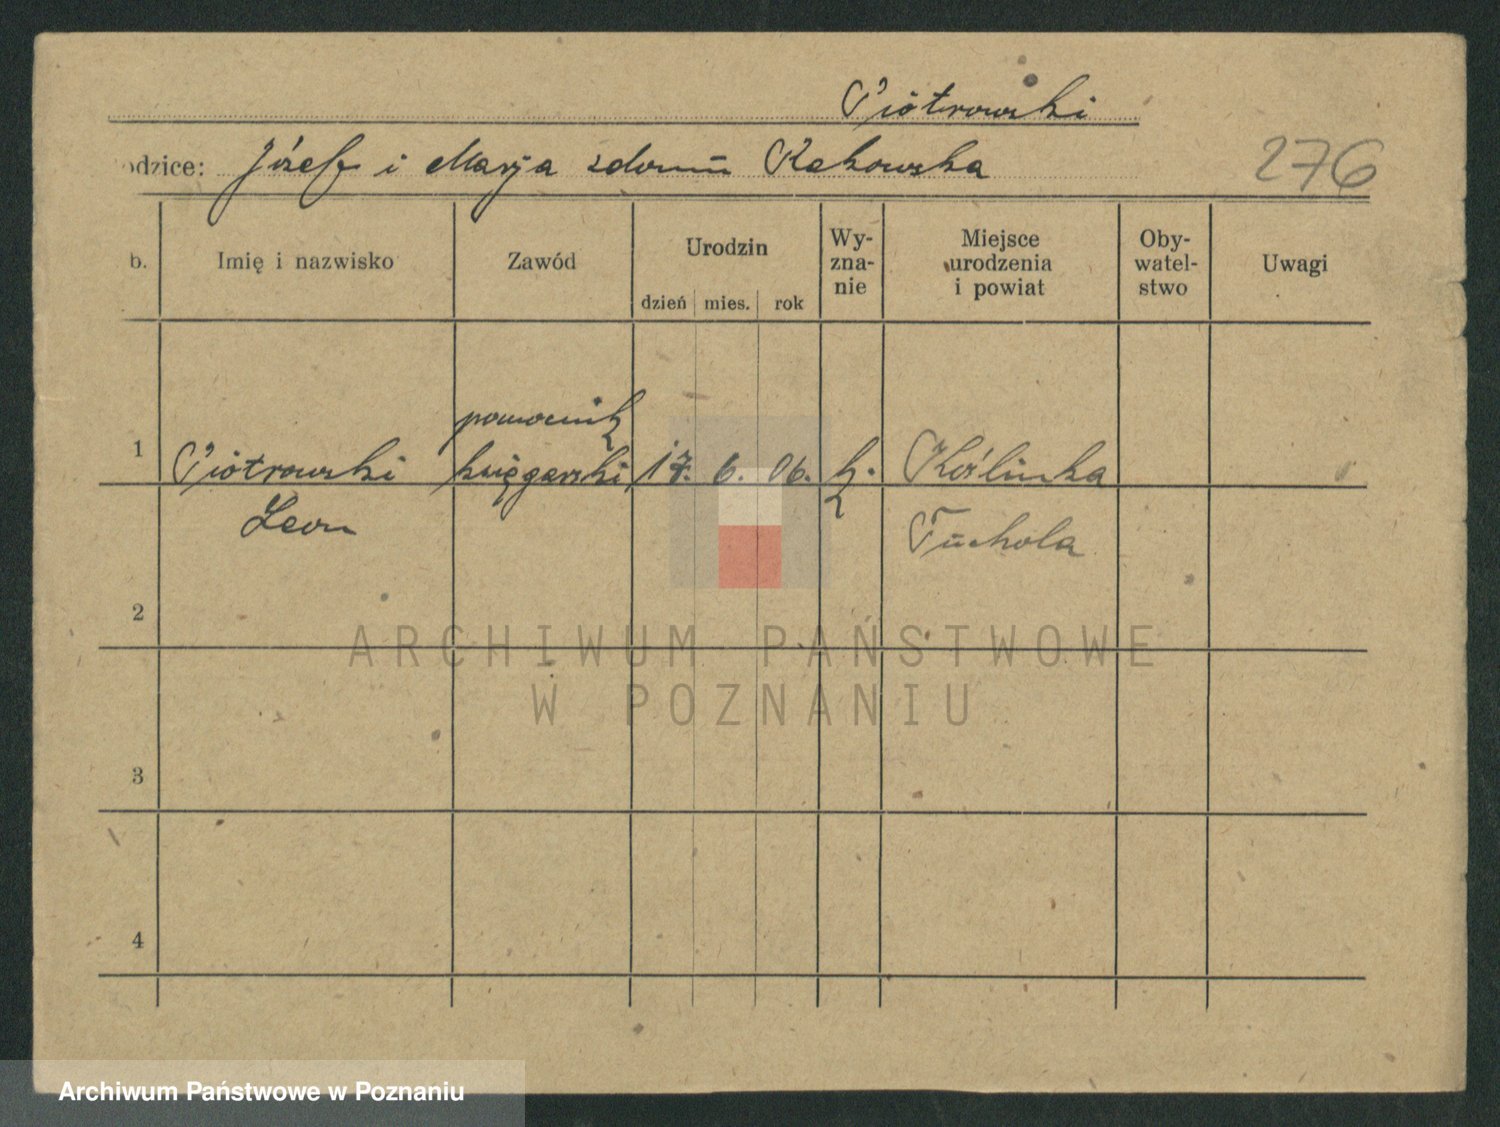 Piotrowski
odzice: Józef i Marja z domu Rekowska
276
b. Imię i nazwisko Zawód Urodzin dzień mies. rok Wy-zna-nie Miejsce urodzenia i powiat Oby-watel-stwo Uwagi
pomocnik
1 Piotrowski księgarski 17. 6. 06. k. Koślinka
Leon Tuchola
2
ARCHIWUM PAŃSTWOWE
W POZNANIU
3
4
Archiwum Państwowe w Poznaniu